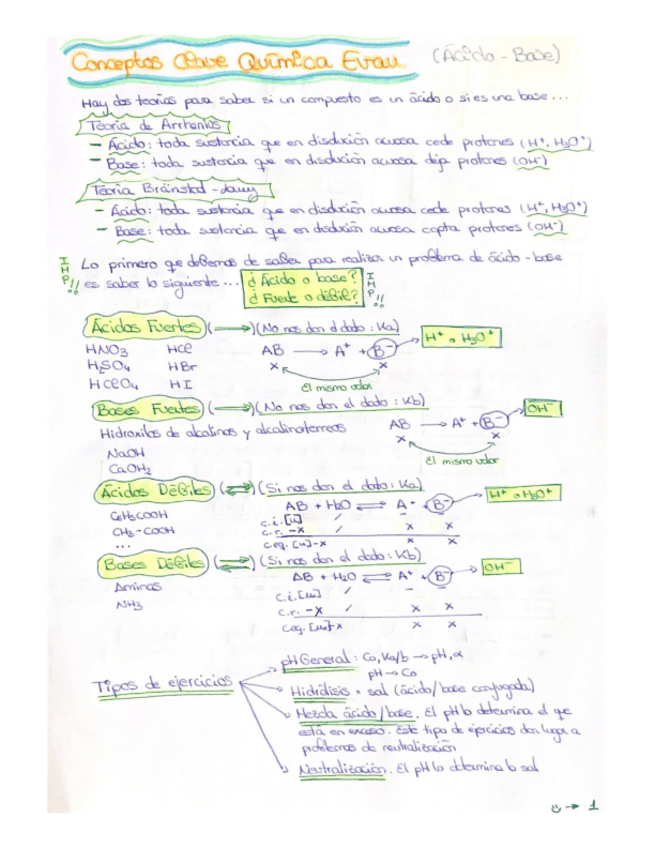 Conceptos Clave Química Evau (Ácido - Base)
Hay dos teorías para saber si un compuesto es un ácido o si es una base...
Teoría de Arrhenius
- Ácido: toda sustancia que en disolución acuosa cede protones (H⁺, H₃O⁺)
- Base: toda sustancia que en disolución acuosa deja protones (OH⁻)
Teoría Bröinsted - Lowry
- Ácido: toda sustancia que en disolución acuosa cede protones (H⁺, H₃O⁺)
- Base: toda sustancia que en disolución acuosa capta protones (OH⁻)
IMP!! Lo primero que debemos de saber para realizar un problema de ácido - base
es saber lo siguiente... ¿Ácido o base? IMP!!
¿Fuerte o débil?
Ácidos Fuertes (⟶) (No nos dan el dato: Ka)
HNO₃ HCl AB ⟶ A⁺ + B⁻ H⁺ o H₃O⁺
H₂SO₄ HBr x x
HClO₄ HI El mismo valor
Bases Fuertes (⟶) (No nos dan el dato: Kb)
Hidróxilos de alcalinos y alcalinoterreos AB ⟶ A⁺ + B⁻ OH⁻
NaOH x x
CaOH₂ El mismo valor
Ácidos Débiles (⇌) (Si nos dan el dato: Ka)
C₆H₅COOH AB + H₂O ⇌ A⁻ + B⁻ H⁺ o H₃O⁺
CH₃-COOH c.i. [M] / - -
... c.r. -x / x x
ceq. [M]-x x x
Bases Débiles (⇌) (Si nos dan el dato: Kb)
Aminas AB + H₂O ⇌ A⁺ + B⁻ OH⁻
NH₃ c.i. [M] / - -
c.r. -x / x x
ceq. [M]-x x x
Tipos de ejercicios
pH General: Co, Ka/b → pH, α
pH → Co
Hidrólisis = sal (ácido/base conjugada)
Mezcla ácido/base. El pH lo determina el que
está en exceso. Este tipo de ejercicios dan lugar a
problemas de neutralización
Neutralización. El pH lo determina la sal
→ 1